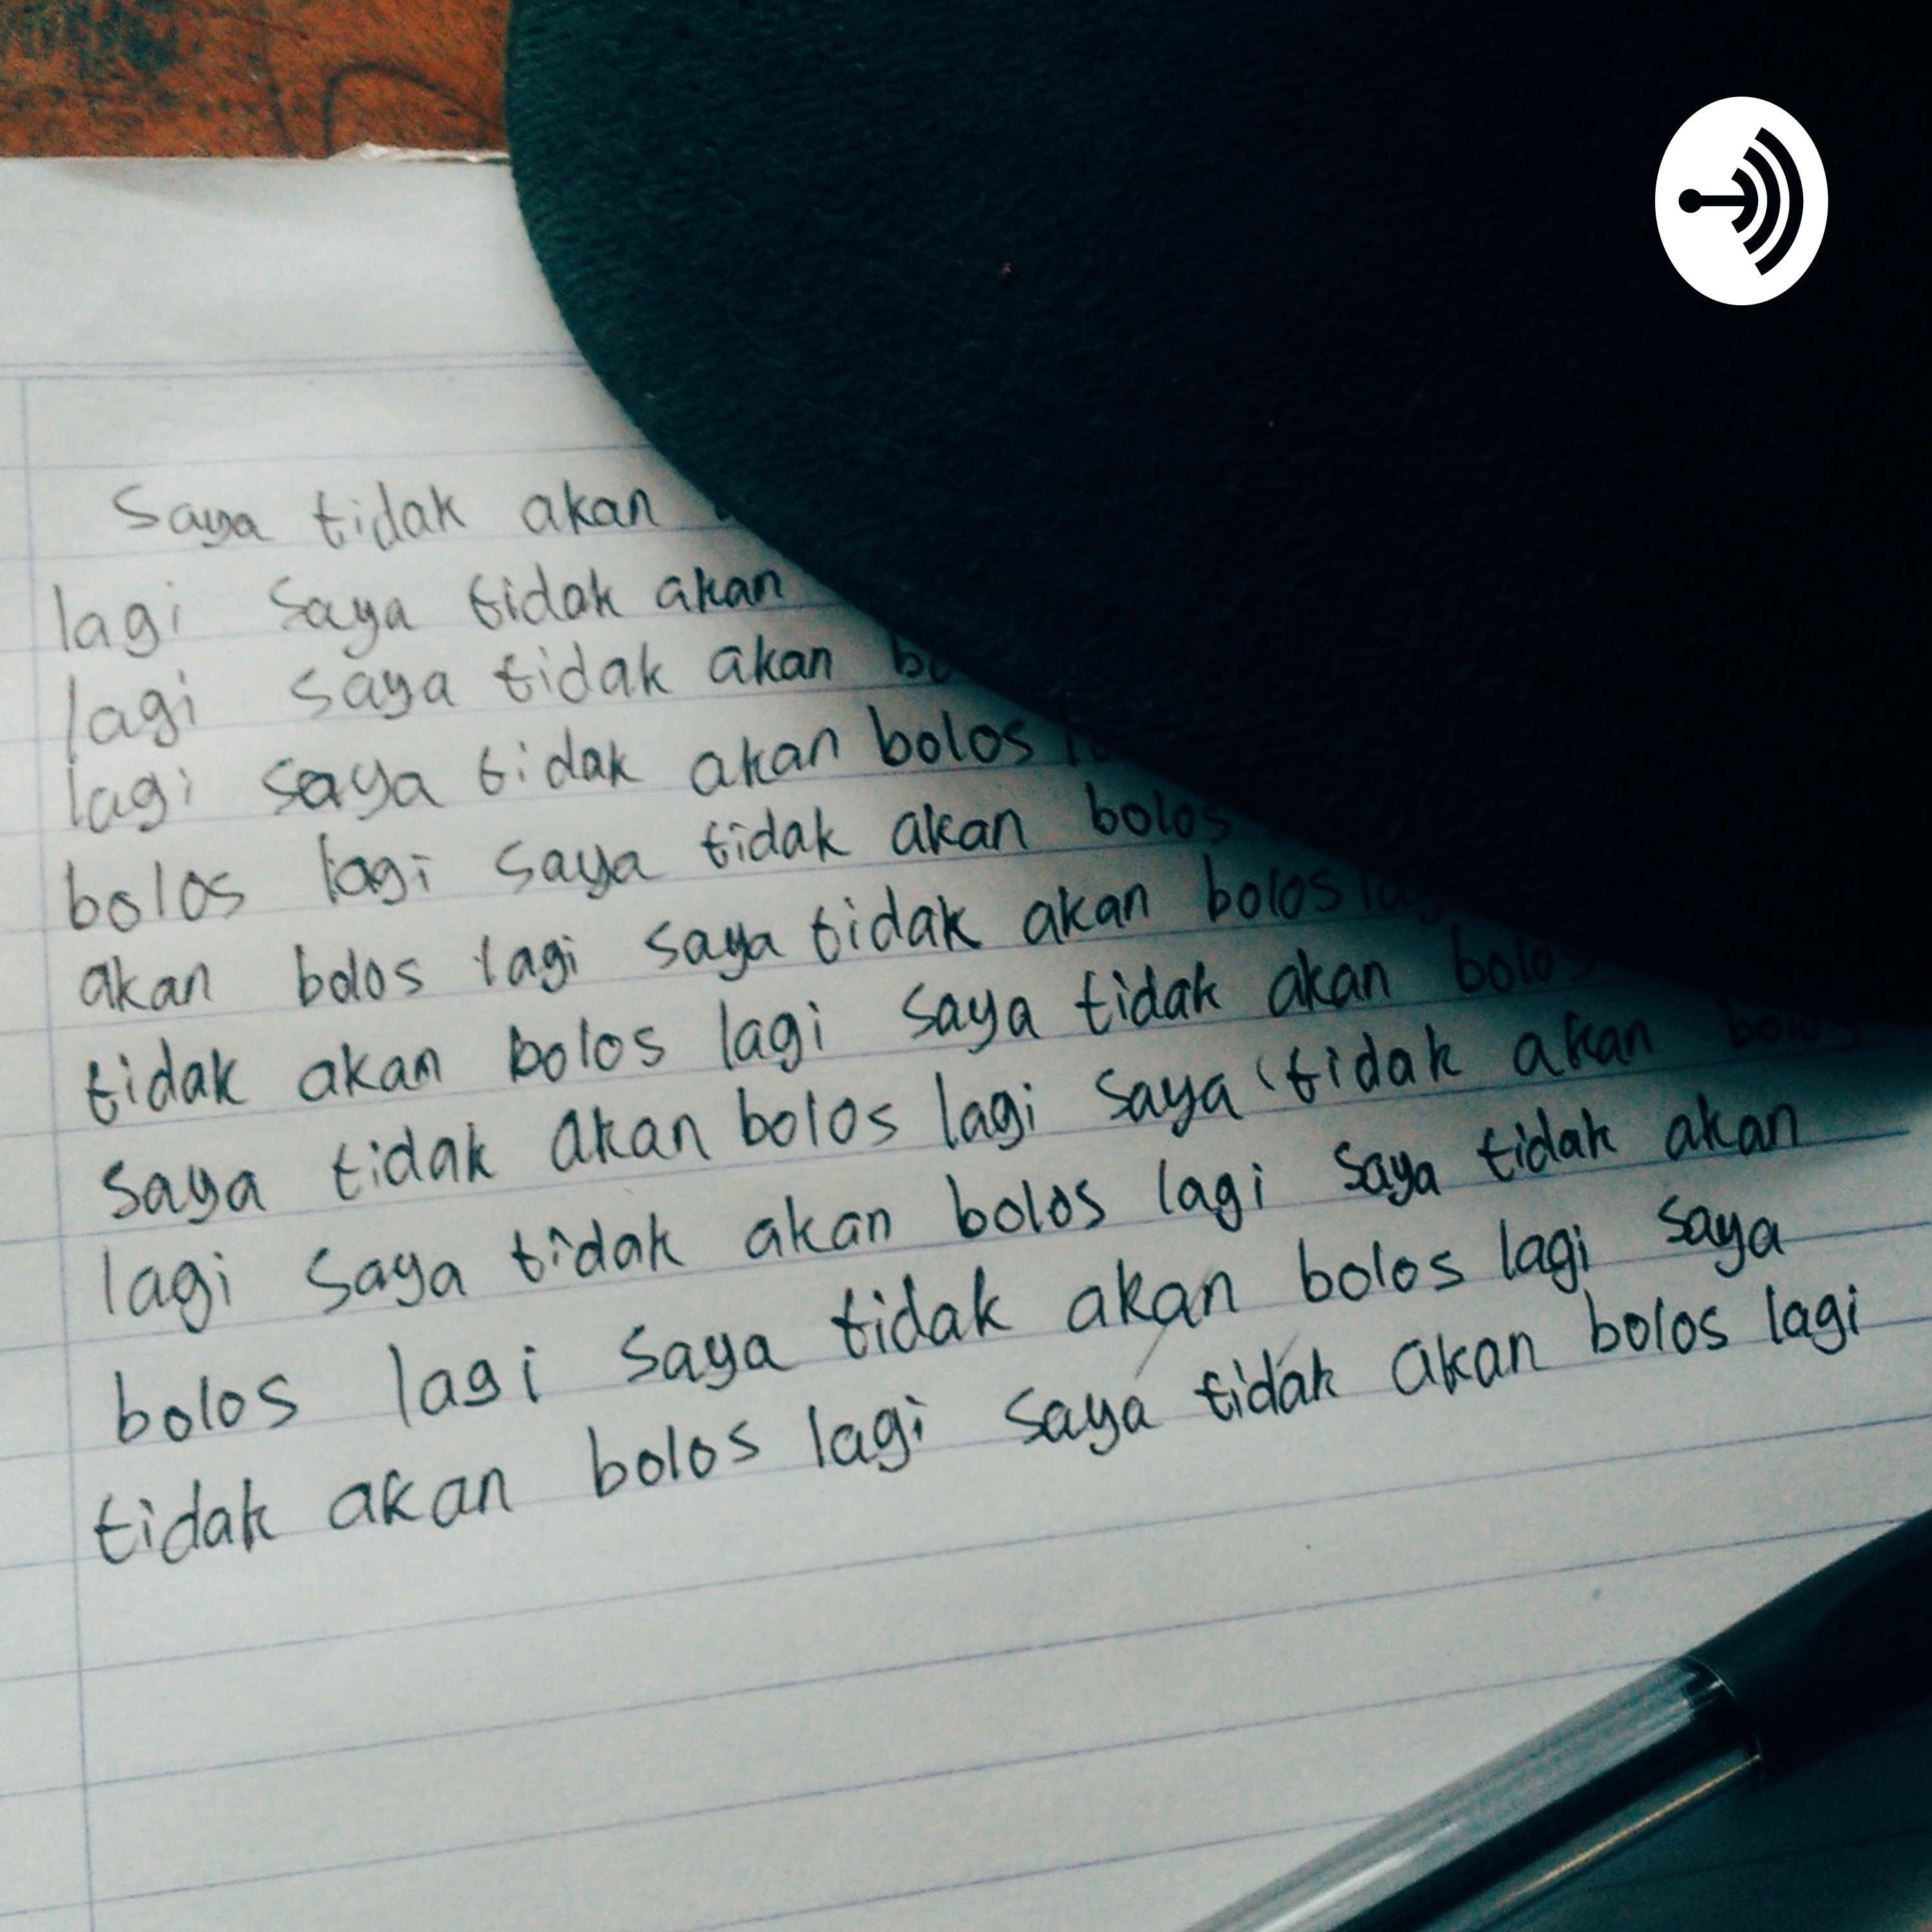 Saya tidak akan
lagi saya tidak akan
lagi saya tidak akan
lagi saya tidak akan bolos
bolos lagi saya tidak akan bolos
akan bolos lagi saya tidak akan bolos
tidak akan bolos lagi saya tidak akan bolos
saya tidak akan bolos lagi saya tidak akan bolos
lagi saya tidak akan bolos lagi saya tidak akan
bolos lagi saya tidak akan bolos lagi saya
tidak akan bolos lagi saya tidak akan bolos lagi